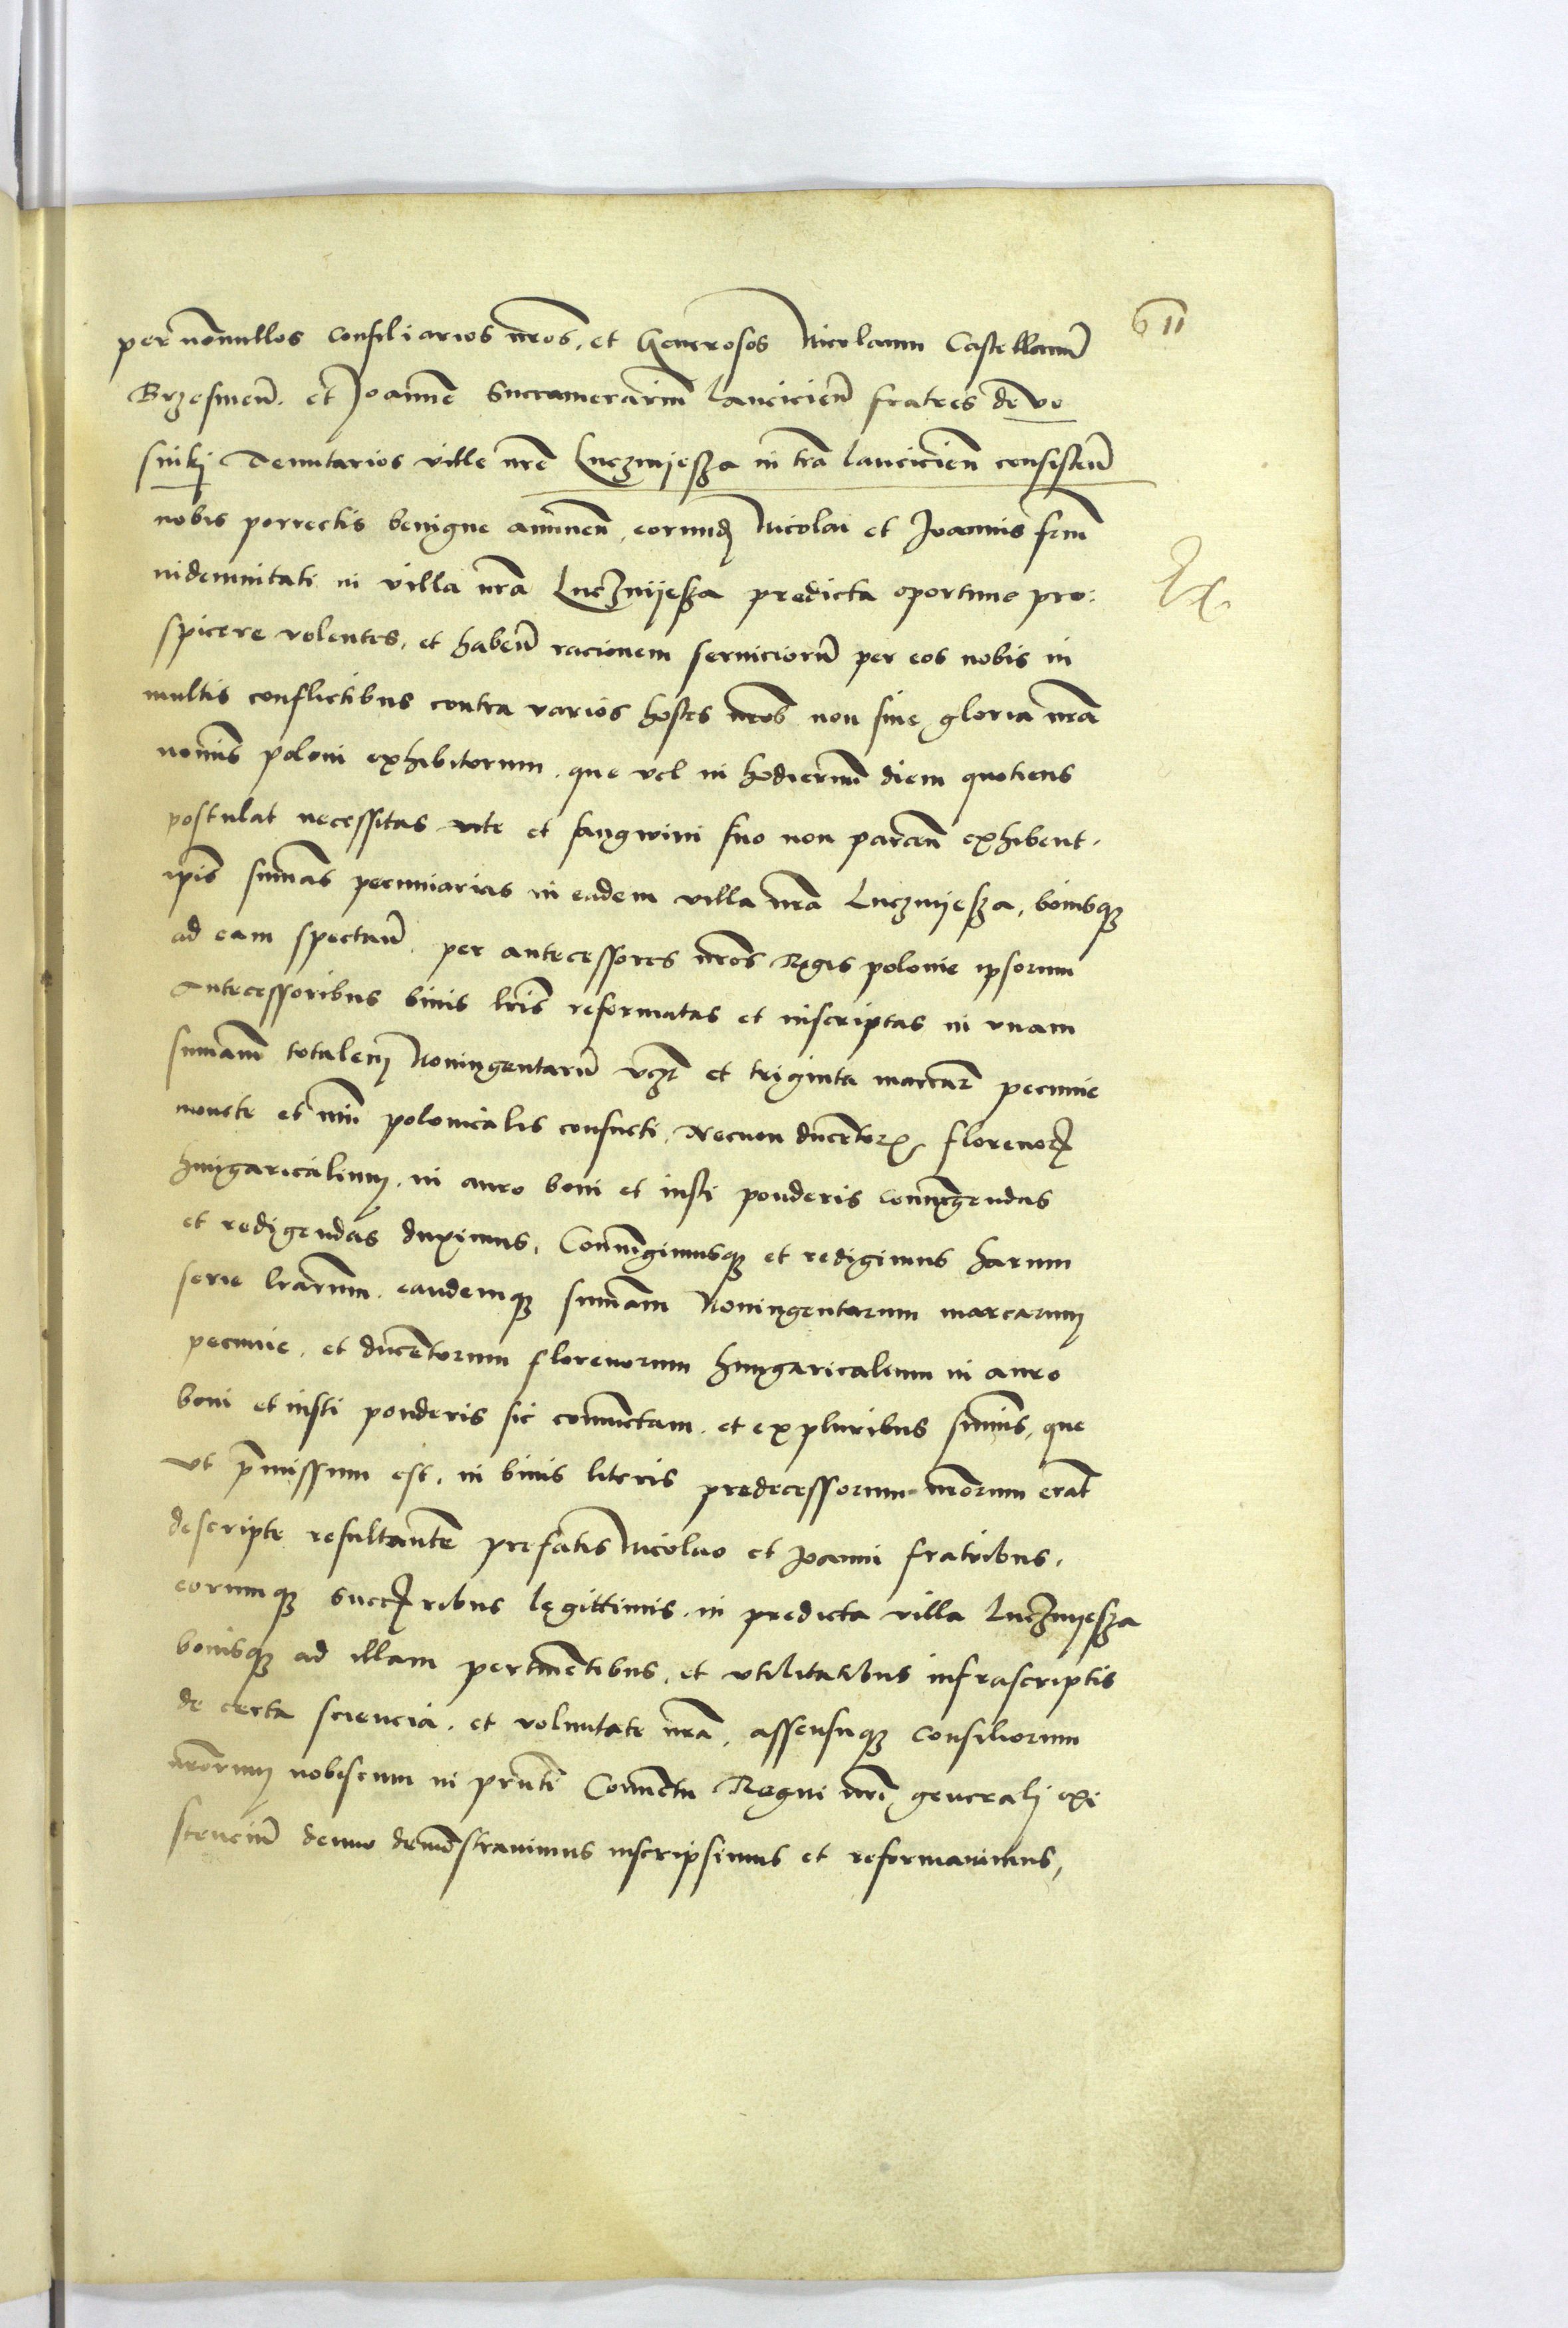 611
per nōnullos consiliarios nr̄os, et Generosos Nicolaum Castellanū
Brzesineñ. et Joannē Succamerariū lancicieñ fratres de vo
sniky Tenutarios ville nr̄e Luczmijesza in tr̄a lancicieñ consisteñ
nobis porrectis benigne annueñ, eorundem Nicolai et Joannis
indemnitati in villa nr̄a Luczmijesza predicta oportune pro:
spicere volentes, et habeñ racionem serviciorū per eos nobis in
multis conflictibus contra varios hostes nr̄os non sine gloria nr̄a
nominis poloni exhibitorum. que vel in hodiernū diem quotiens
postulat necessitas vite et sangwini suo non parceñ exhibent.
ip̄is summas pecuniarias in eadem villa nr̄a Luczmijesza, bonisque
ad eam spectañ. per antecessores nr̄os Reges polonie ipsorum
Antecessoribus binis lr̄is reformatas et inscriptas in vnam
summam totalem Noningentarū vcz et triginta marcar pecunie
monete et nūi polonicalis consueti, Necnon ducentorum florenorum
hungaricalium, in auro boni et iusti ponderis coniungendas
et redigendas duximus, Coniungimusque et redigimus harum
serie lr̄arum. eandemque summam Noningentarum marcarum
pecunie, et ducentorum florenorum hungaricalium in auro
boni et iusti ponderis sic coniunctam. et ex pluribus summis, que
vt p̄missum est, in binis literis predecessorum nr̄orum erant
descripte resultantē prefatis Nicolao et Joanni fratribus,
eorumque successoribus legittimis. in predicta villa Luczmijesza
bonisque ad illam pertinentibus, et vtilitatibus infrascriptis
de certa sciencia, et voluntate nr̄a, assensuque consiliorum
nr̄orum nobiscum in pr̄nti Conventu Regni nr̄i generali exi
stenciū denuo demōstravimus inscripsimus et reformavimus,